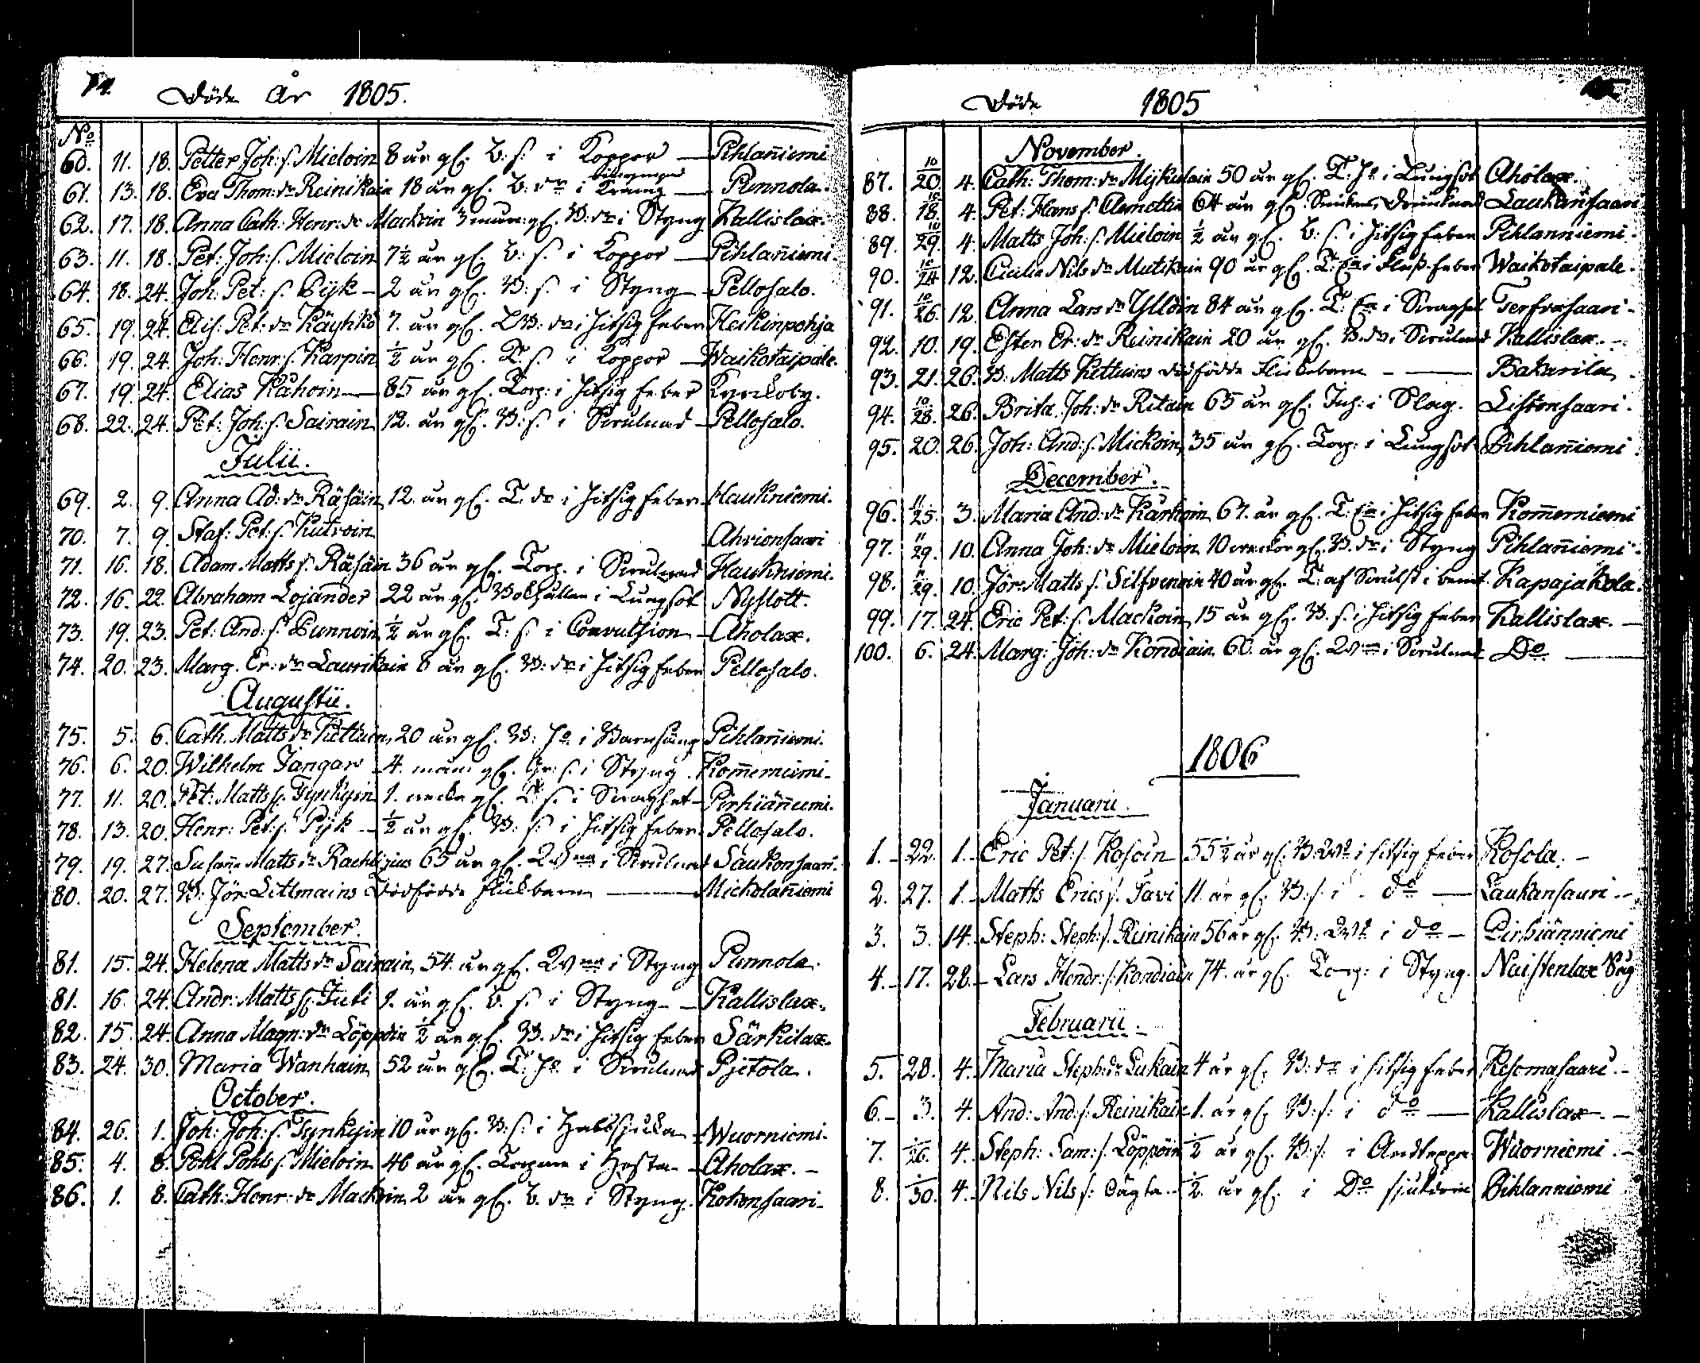 Döde År 1805.
No
60. 11. 18. Petter Joh: s. Mieloin 8 år gl. B: s: i Koppor — Pihlañiemi
61. 13. 18. Eva Thom: dr Reinikain 18 år gl. B: dr i Punnola.
62. 17. 18. Anna Cath. Henr: dr Mackoin 3 mån: gl. B: dr i Styng Kallislax.
63. 11. 18. Pet: Joh: s. Mieloin 7½ år gl. B: s. i Koppor — Pihlañiemi.
64. 18. 24. Joh: Pet: s. Pijk — 2 år gl. B: s. i Styng — Pellosalo.
65. 19. 24. Elis: Pet: dr Käyhkö 7. år gl. dr i hitsig feber Heikinpohja
66. 19. 24. Joh: Henr: s. Karpin ½ år gl. T. s. i Koppor — Waikotaipale.
67. 19. 24. Elias Kähoin — 85 år gl. Torp: i hitsig feber Kyrckoby.
68. 22. 24. Pet: Joh: s. Sairain 12. år gl. B. s. i Svulnad — Pellosalo.
Julii.
69. 2. 9. Anna Ad: dr Räsäin 12. år gl. T. dr i hitsig feber Haukniemi.
70. 7. 9. Staf: Pet: s. Kutvoin Ahvionsaari
71. 16. 18. Adam Matts s. Räsäin 36 år gl. Torp. i Svulnad Haukniemi.
72. 16. 22. Abraham Lojander 22 år gl. i Lungsot Nyslott.
73. 19. 23. Pet: And: s. Punnoin ½ år gl. T: s. i Convulsion — Aholax.
74. 20. 23. Marg. Er: dr Laurikain 8 år gl. B: dr i hitsig feber Pellosalo.
Augustii.
75. 5. 6. Cath. Matts dr Kettuin 20 år gl. B: h. i Barnsäng Pihlañiemi.
76. 6. 20. Wilhelm Zangar 4. mån: gl. s. i Styng. Kom̃erniemi.
77. 11. 20. Pet: Matts s. Tynkysin 1. vecka gl. T. s. i Svaghet — Pirhiäñiemi.
78. 13. 20. Henr: Pet: s. Pijk — ½ år gl. B: s. i hitsig feber Pellosalo.
79. 19. 27. Susañ Matts dr 65 år gl. i Svulnad Saukonsaari.
80. 20. 27. B: Jör. Littmains Dödfödde Flickbarn — Mickolañiemi
September.
81. 15. 24. Helena Matts dr Sairain 54. år gl. i Styng Punnola.
81. 16. 24. Andr: Matts s. Juti 1. år gl. B. s. i Styng — Kallislax.
82. 15. 24. Anna Magn: dr Löppöin ½ år gl. B. dr i hitsig feber Särkilax.
83. 24. 30. Maria Wanhain 52 år gl. T. h. i Svulnad Pjetola.
October.
84. 26. 1. Joh: Joh: s. Tynkysin 10 år gl. B: s: i Halssjuka Wuorniemi.
85. 4. 8. Pohl Pohls s. Mieloin 46 år gl. i Hosta — Aholax. —
86. 1. 8. Cath. Henr: dr Mackoin 2 år gl. B. dr i Styng. Kokonsaari —
Döde 1805
November.
87. 10/20 4. Cath: Thom: dr Myckulain 50 år gl. T. h. i Lungsot Aholax.
88. 10/18. 4. Pet: Hans s. Clemettin 64 år gl. Laukansaari
89. 10/29. 4. Matts Joh: s. Mieloin ½ år gl. B. s. i hitsig feber Pihlanniemi.
90. 10/24 12. Cicilia Nils dr Mutikain 90 år gl. T. i feber Waikotaipale.
91. 10/26 12. Anna Lars dr Yllöin 84 år gl. T. i Svaghet
92. 10. 19. Ester Er: dr Reinikain 20 år gl. B. dr i Svulnad Kallislax. —
93. 21. 26. B: Matts Kettuins dödfödde Flickebarn — Bakarila
94. 10/28. 26. Brita Joh: dr Ritain 65 år gl. Inh: i Slag. Liistonsaari.
95. 20. 26. Joh: And: s. Mickoin 35 år gl. Torp: i Lungsot Pihlañiemi
December.
96. 11/25 3. Maria And: dr Karhoin 67. år gl. T. i hitsig feber Kom̃erniemi
97. 11/29. 10. Anna Joh: dr Mieloin 10 veckor gl. B. dr i Styng Pihlañiemi.
98. 11/29. 10. Jör: Matts s. Silfvenoin 40 år gl. T. af Svulst i benet Kapajäkola.
99. 17. 24. Eric Pet: s. Mackoin 15 år gl. B. s. i hitsig feber Kallislax. —
100. 6. 24. Marg: Joh: dr Kondiain 60. år gl. i Svulnad Do —
1806
Januarii.
1. 22. 1. Eric Pet: s. Kosoin 55½ år gl. B. i hitsig feber Kosola. —
2. 27. 1. Matts Erics s. Savi 11. år gl. B: s: i do — Laukansaari —
3. 3. 14. Steph: Steph: s. Reinikain 56 år gl. B: i do — Pirhiänniemi
4. 17. 28. Lars Hendr: s. Kondiain 74. år gl. Torp: i Styng. Naistenlax
Februarii.
5. 28. 4. Maria Steph: dr Lukain 4 år gl. B: dr i hitsig feber Kesomasaari. —
6. 3. 4. And: And: s. Reinikain 1. år gl. B: s: i do — Kallislax —
7. 1/26. 4. Steph: Sam: s. Löppöin ½ år gl. B: s: i Andtäppa Wuorniemi —
8. 1/30. 4. Nils Nils s: ½. år gl. i Do sjukdom Pihlanniemi